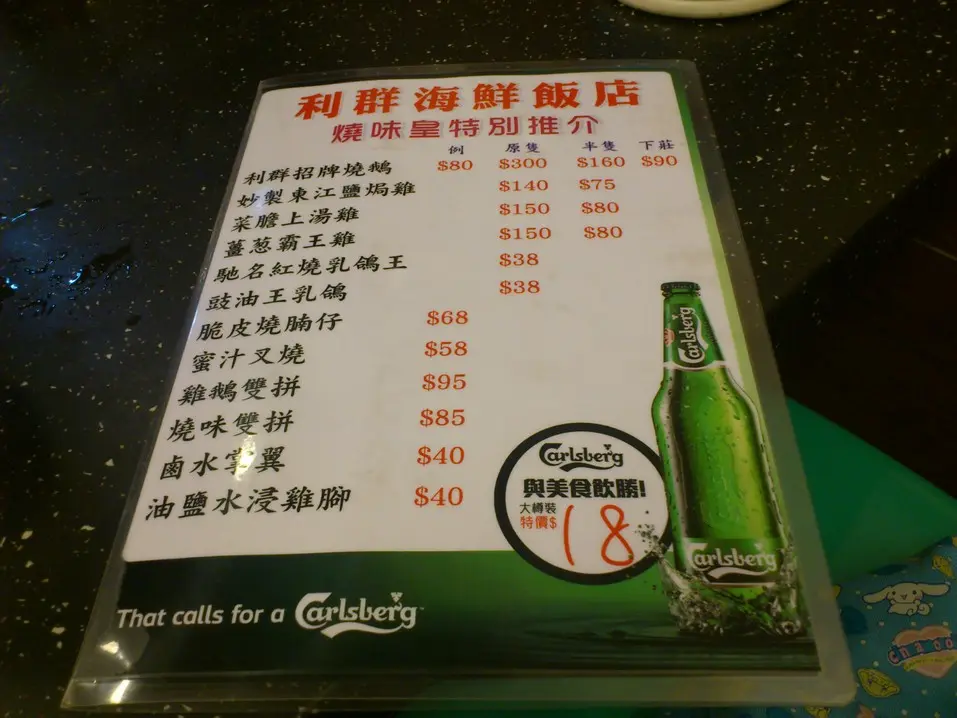 利群海鮮飯店
燒味皇特別推介
例 原隻 半隻 下莊
利群招牌燒鵝 $80 $300 $160 $90
妙製東江鹽焗雞 $140 $75
菜膽上湯雞 $150 $80
薑葱霸王雞 $150 $80
馳名紅燒乳鴿王 $38
豉油王乳鴿 $38
脆皮燒腩仔 $68
蜜汁叉燒 $58
雞鵝雙拼 $95
燒味雙拼 $85
鹵水掌翼 $40
油鹽水浸雞腳 $40
Carlsberg
Carlsberg
與美食飲勝!
大樽裝
特價$ 18
Carlsberg
That calls for a Carlsberg